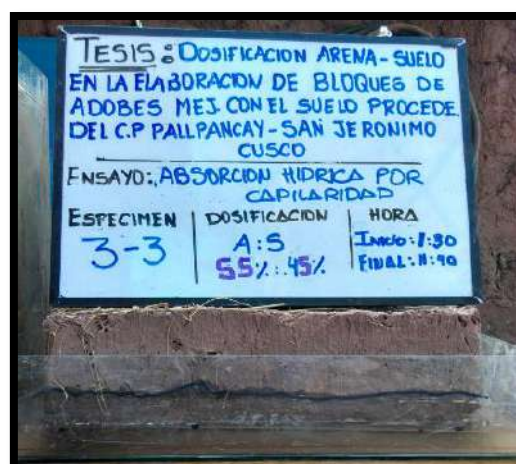 TESIS: DOSIFICACION ARENA - SUELO
EN LA ELABORACION DE BLOQUES DE
ADOBES MEJ. CON EL SUELO PROCEDE.
DEL C.P PALLPANCAY - SAN JERONIMO
CUSCO
ENSAYO: ABSORCION HIDRICA POR
CAPILARIDAD
ESPECIMEN DOSIFICACION HORA
3-3 A:S INICIO: 1:30
55%:45% FINAL: 11:40